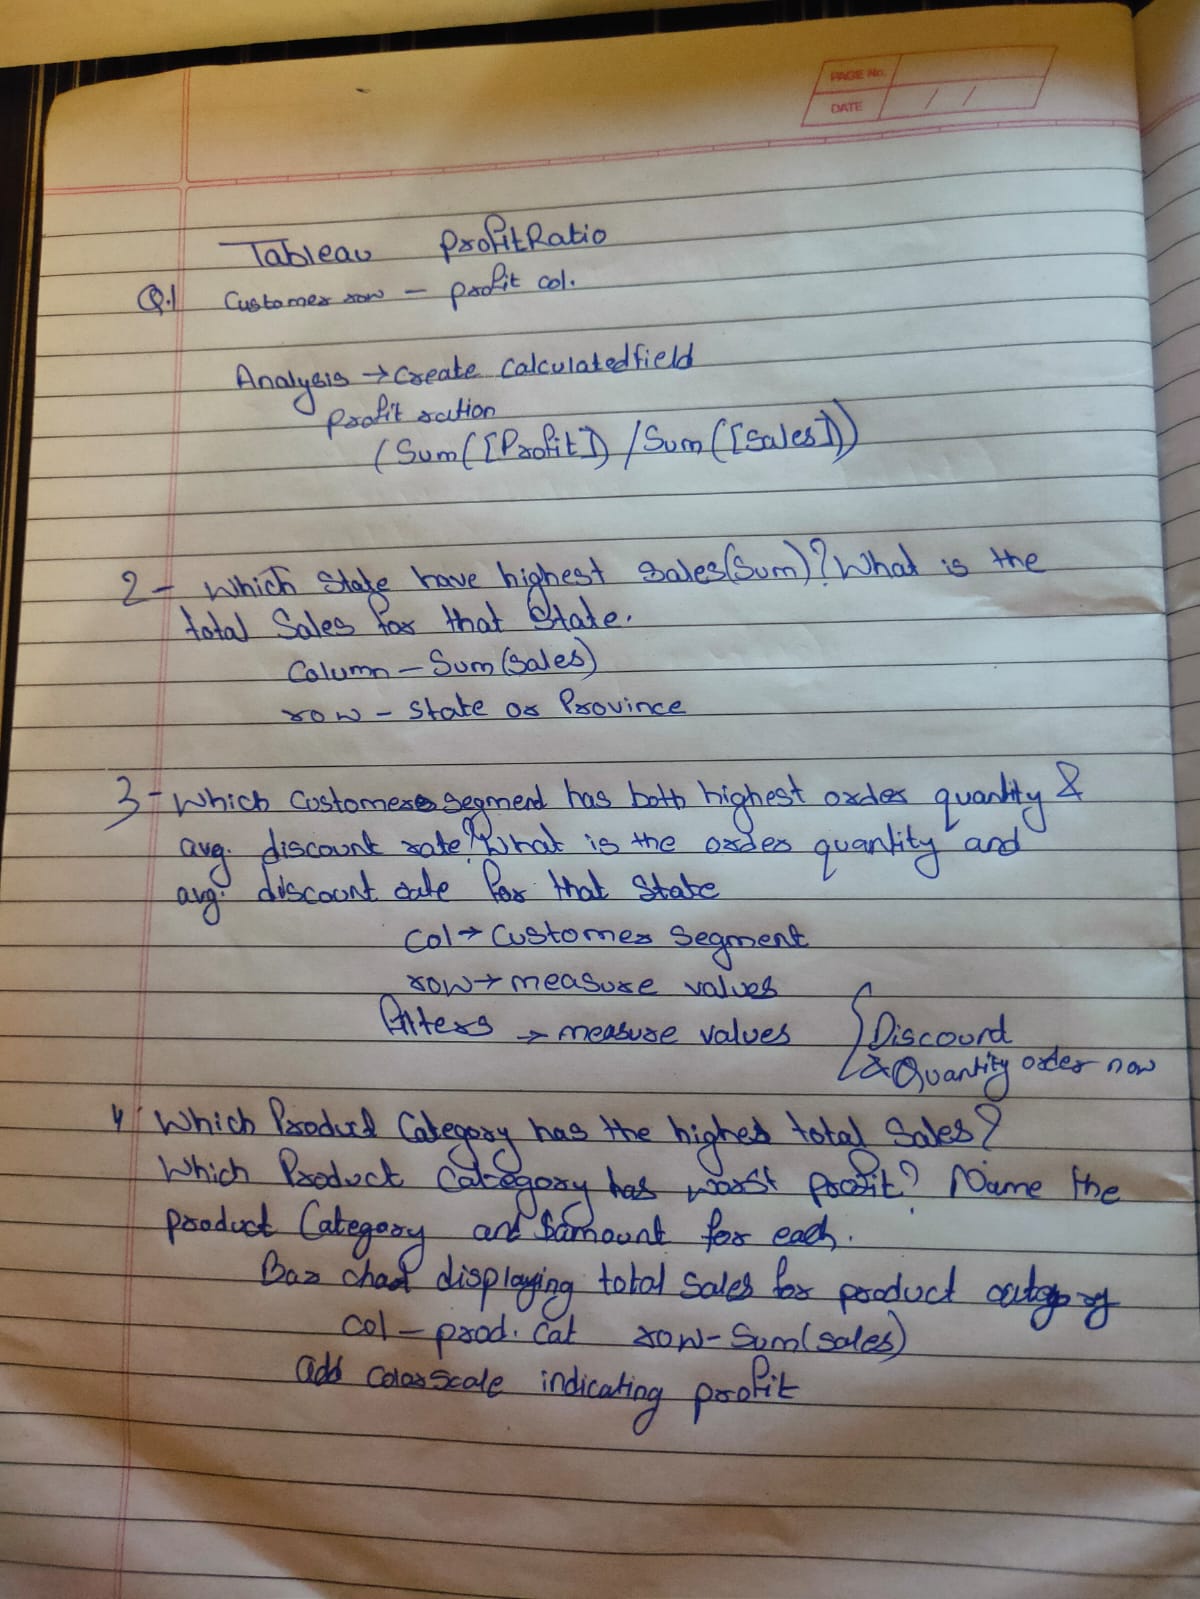 PAGE No.
DATE / /
Tableau ProfitRatio
Q.1 Customer row - profit col.
Analysis → Create Calculatedfield
Profit ration
(Sum([Profit]) / Sum([Sales]))
2- Which State have highest Sales(Sum)? What is the
total Sales for that State.
Column - Sum(Sales)
row - State or Province
3- Which Customer segment has both highest order quantity &
avg. discount rate? What is the order quantity and
avg. discount rate for that State
Col → Customer Segment
row → measure values
filters → measure values { Discound
& Quantity order now
4 Which Product Category has the highest total Sales?
Which Product Category has worst profit? Name the
product Category and $amount for each.
Bar chart displaying total Sales for product category
Col - prod. Cat row - Sum(sales)
add Colorscale indicating profit